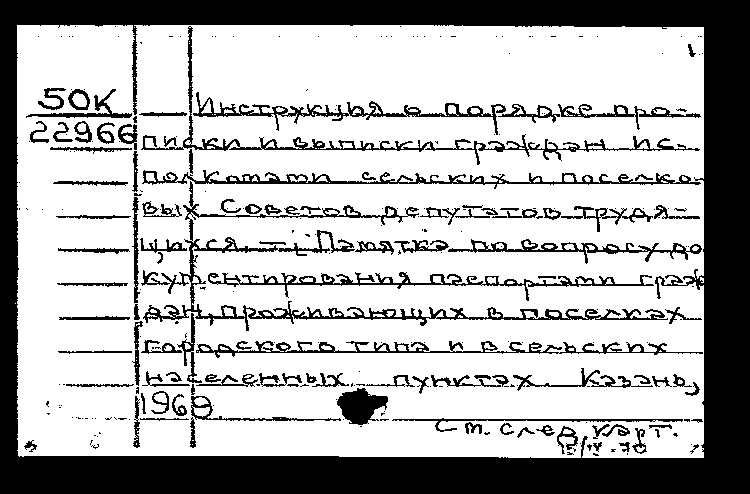 1
50К
22966
Инструкция о порядке про-
писки и выписки граждан ис-
полкомами сельских и поселко-
вых Советов депутатов трудя-
щихся. — Памятка по вопросу до
кументирования паспортами граж
дан, проживающих в поселках
городского типа и в сельских
населенных пунктах. Казань,
1969.
См. след. карт.